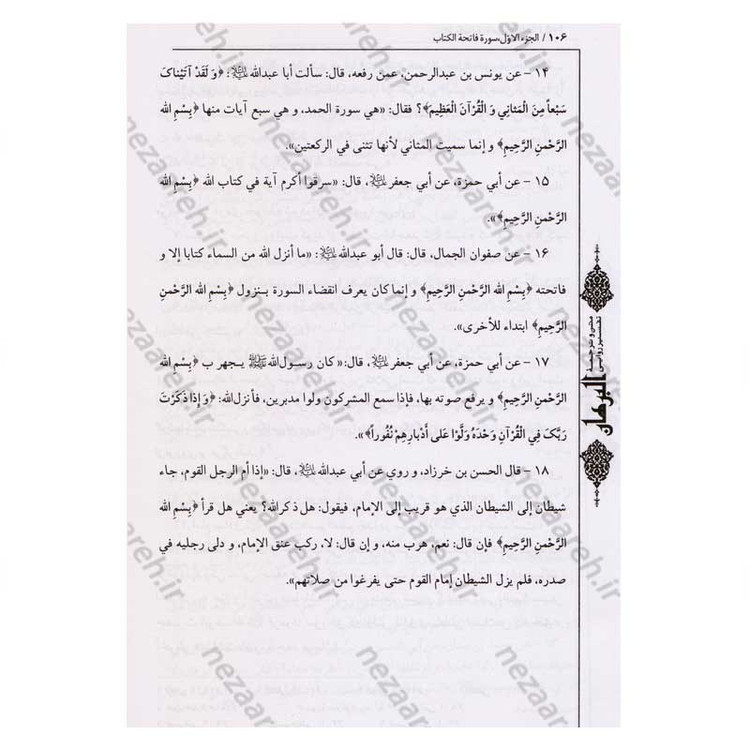 ١٠۶ / الجزء الاوّل،سورة فاتحة الكتاب
١۴ – عن يونس بن عبدالرحمن، عمن رفعه، قال: سألت أبا عبدالله عليه السلام: ﴿وَ لَقَدْ آتَيْناکَ
سَبْعاً مِنَ الْمَثانِي وَ الْقُرْآنَ الْعَظِيمَ﴾؟ فقال: «هي سورة الحمد، و هي سبع آيات منها ﴿بِسْمِ الله
الرَّحْمنِ الرَّحِيمِ﴾ و إنما سميت المثاني لأنها تثنى في الركعتين».
١۵ – عن أبي حمزة، عن أبي جعفر عليه السلام، قال: «سرقوا أكرم آية في كتاب الله ﴿بِسْمِ الله
الرَّحْمنِ الرَّحِيمِ﴾».
١۶ – عن صفوان الجمال، قال: قال أبو عبدالله عليه السلام: «ما أنزل الله من السماء كتابا إلا و
فاتحته ﴿بِسْمِ الله الرَّحْمنِ الرَّحِيمِ﴾ و إنما كان يعرف انقضاء السورة بنزول ﴿بِسْمِ الله الرَّحْمنِ
الرَّحِيمِ﴾ ابتداء للأخرى».
١٧ – عن أبي حمزة، عن أبي جعفر عليه السلام، قال: «كان رسول‌الله صلى الله عليه وآله يجهر ب ﴿بِسْمِ الله
الرَّحْمنِ الرَّحِيمِ﴾ و يرفع صوته بها، فإذا سمع المشركون ولوا مدبرين، فأنزل‌الله: ﴿وَ إِذا ذَكَرْتَ
رَبَّکَ فِي الْقُرْآنِ وَحْدَهُ وَلَّوْا عَلى أَدْبارِهِمْ نُفُوراً﴾».
١٨ – قال الحسن بن خرزاد، و روي عن أبي عبدالله عليه السلام، قال: «إذا أم الرجل القوم، جاء
شيطان إلى الشيطان الذي هو قريب إلى الإمام، فيقول: هل ذكر الله؟ يعني هل قرأ ﴿بِسْمِ الله
الرَّحْمنِ الرَّحِيمِ﴾ فإن قال: نعم، هرب منه، و إن قال: لا، ركب عنق الإمام، و دلى رجليه في
صدره، فلم يزل الشيطان إمام القوم حتى يفرغوا من صلاتهم».
متن و ترجمه
تفسير روائي
البرهان
nezaareh.ir